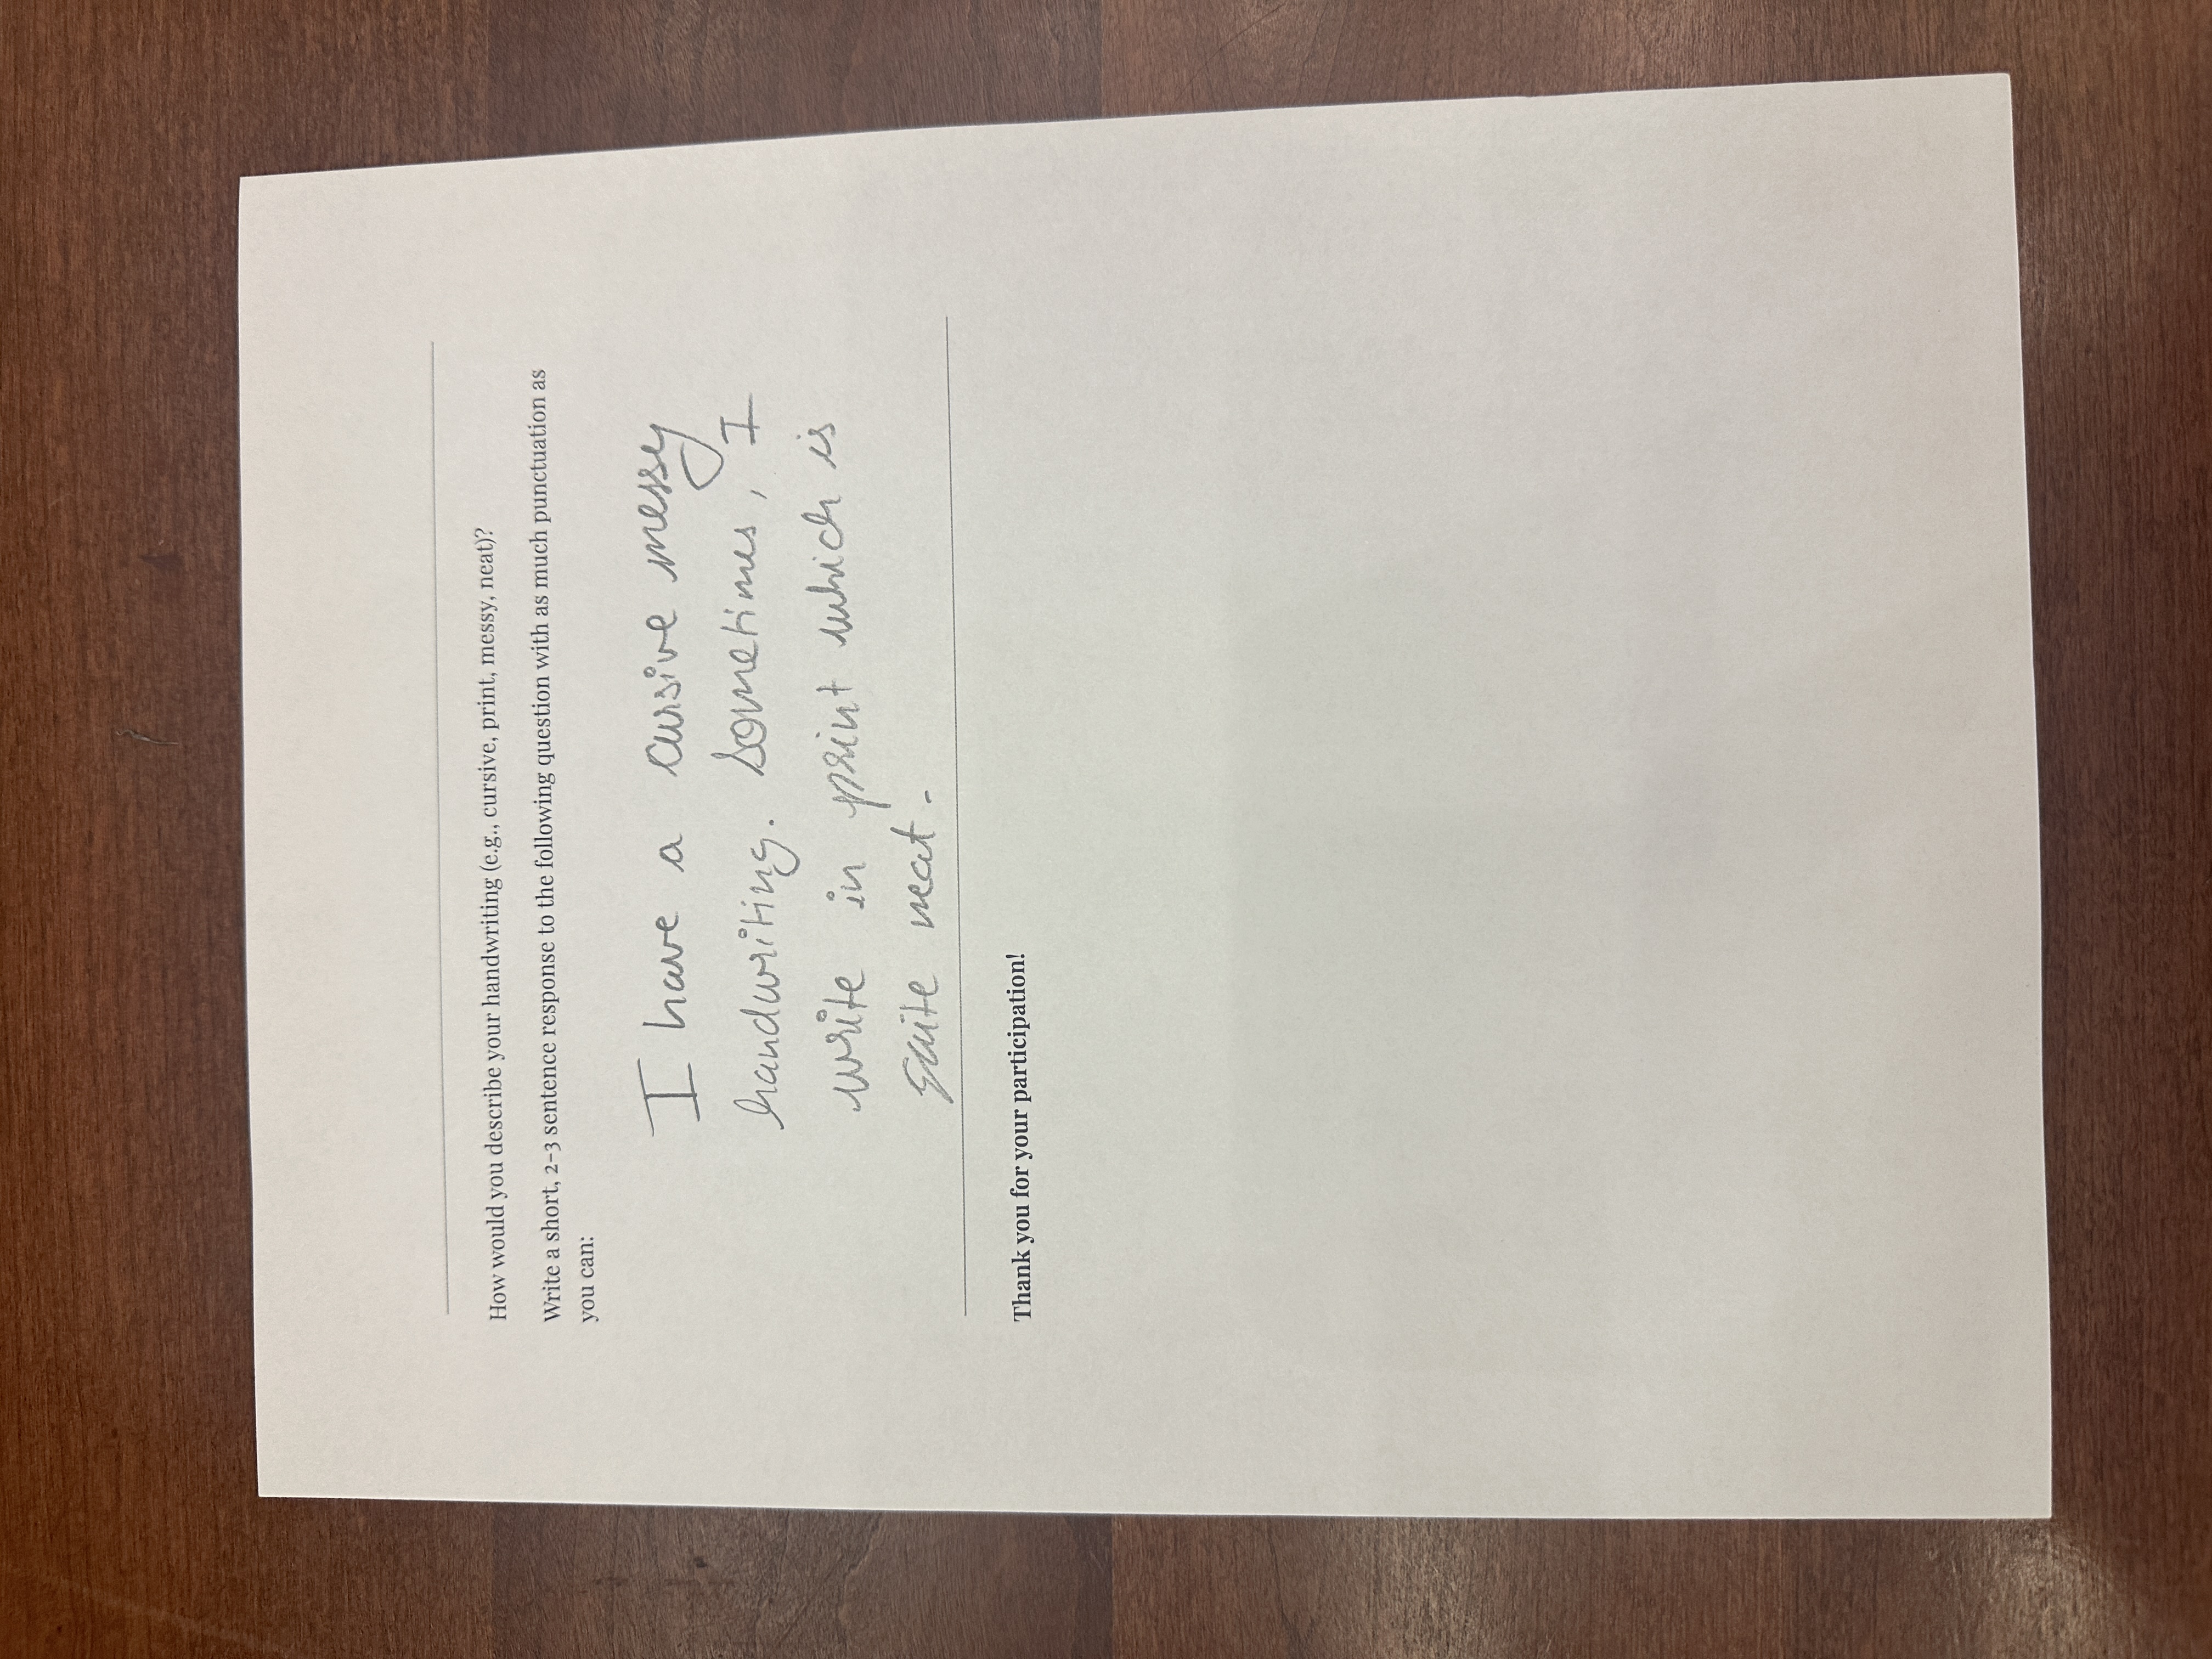 How would you describe your handwriting (e.g., cursive, print, messy, neat)?
Write a short, 2-3 sentence response to the following question with as much punctuation as
you can:
I have a cursive messy
handwriting. Sometimes, I
write in print which is
quite neat.
Thank you for your participation!